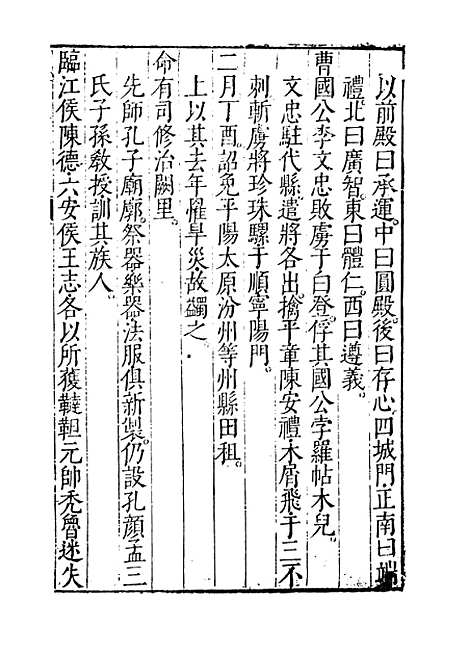 以前殿曰承運。中曰圓殿。後曰存心。四城門。正南曰端
禮。北曰廣智。東曰體仁。西曰遵義。
曹國公李文忠敗虜于白登。俘其國公孛羅帖木兒。
文忠駐代縣。遣將各出。擒平章陳安禮。木屑飛于三不
剌。斬虜將珍珠驢于順寧陽門。
二月丁酉。詔免平陽太原汾州等州縣田租。
上以其去年罹旱災。故蠲之。
命有司修治闕里。
先師孔子廟廊。祭器樂器。法服俱新製。仍設孔顏孟三
氏子孫教授訓其族人。
臨江侯陳德六安侯王志各以所獲韃靼元帥禿魯迷失